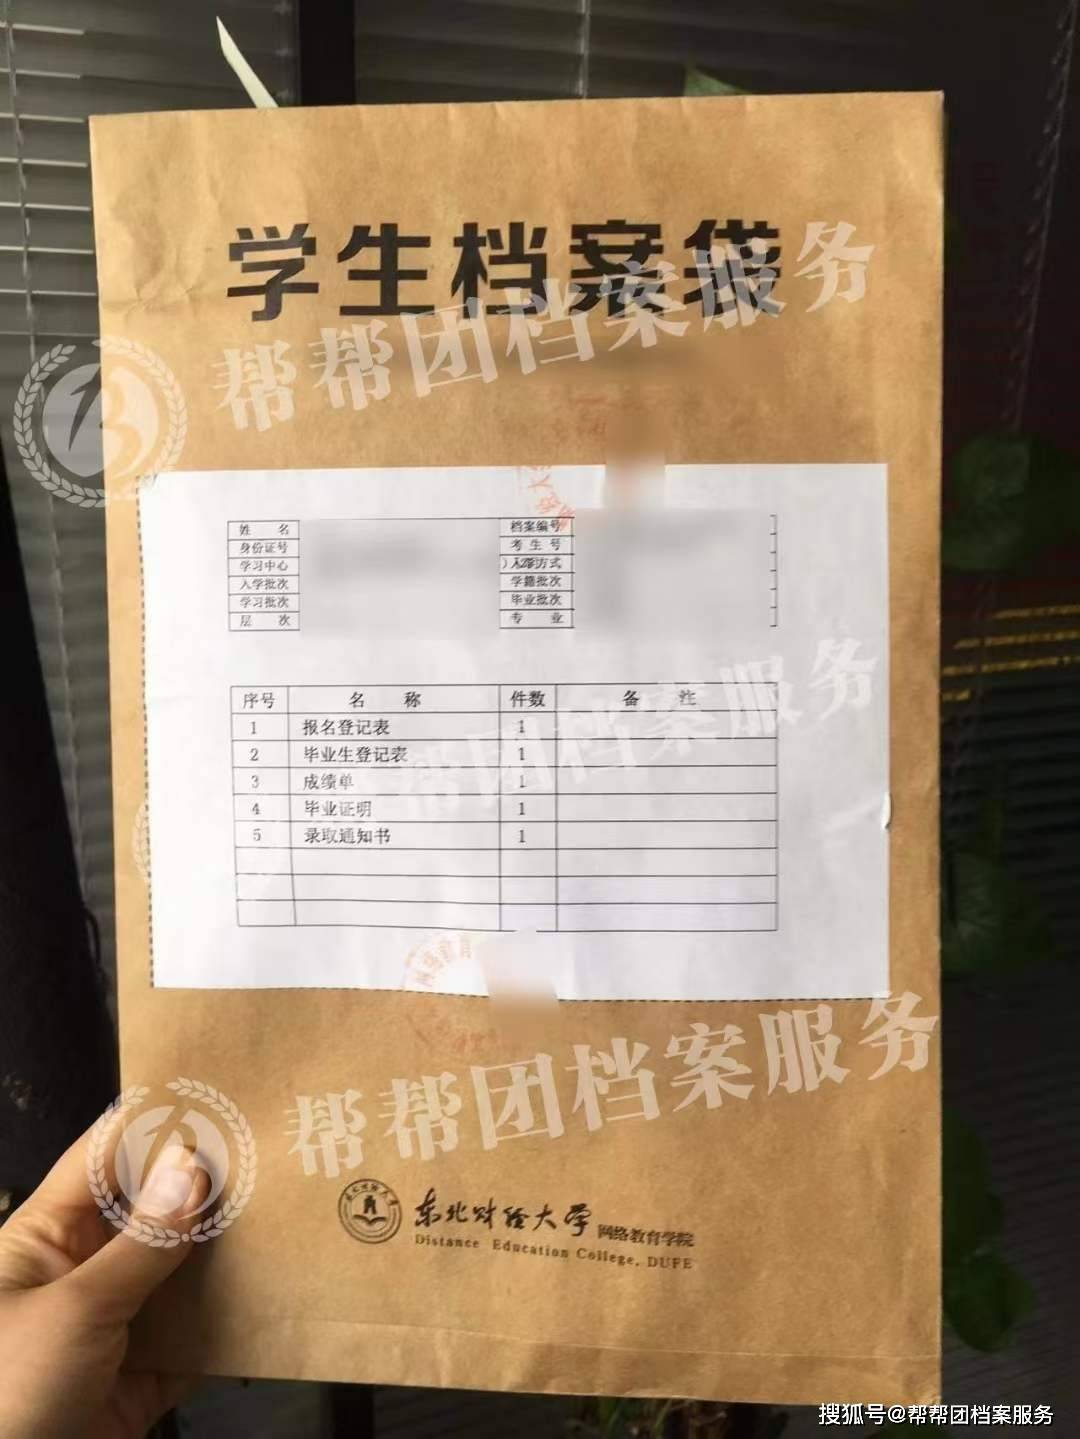 学生档案袋
帮帮团档案服务
姓 名 档案编号
身份证号 考生号
学习中心 入学方式
入学批次 学籍批次
学习批次 毕业批次
层 次 专 业
序号 名 称 件数 备 注
1 报名登记表 1
2 毕业生登记表 1
3 成绩单 1
4 毕业证明 1
5 录取通知书 1
帮团档案服务
网络教育
帮帮团档案服务
东北财经大学 网络教育学院
Distance Education College, DUFE
搜狐号@帮帮团档案服务